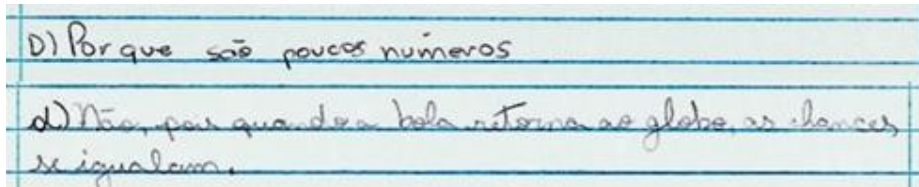 D) Porque são poucos números
d) Não, pois quando a bola retorna ao globo, as chances
se igualam.